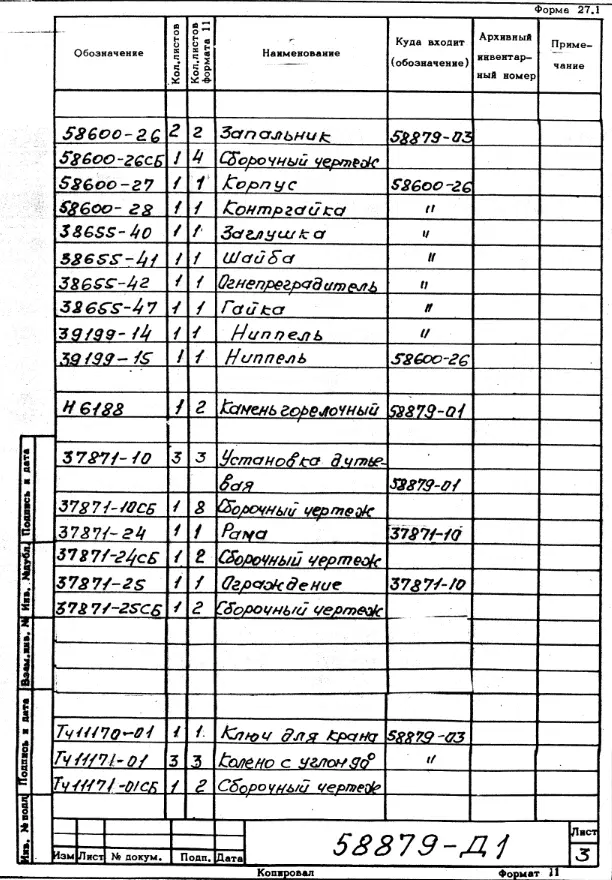 Форма 27.1
Обозначение Кол.листов Кол.листов формата 11 Наименование Куда входит (обозначение) Архивный инвентарный номер Примечание
58600-26 2 2 Запальник 58879-03
58600-26СБ 1 4 Сборочный чертеж
58600-27 1 1 Корпус 58600-26
58600-28 1 1 Контргайка "
38655-40 1 1 Заглушка "
38655-41 1 1 Шайба "
38655-42 1 1 Огнепреградитель "
38655-47 1 1 Гайка "
39199-14 1 1 Ниппель "
39199-15 1 1 Ниппель 58600-26
Н 6188 1 2 Камень горелочный 58879-01
37871-10 3 3 Установка дутье-
вая 58879-01
37871-10СБ 1 8 Сборочный чертеж
37871-24 1 1 Рама 37871-10
37871-24СБ 1 2 Сборочный чертеж
37871-25 1 1 Ограждение 37871-10
37871-25СБ 1 2 Сборочный чертеж
ТЧ11170-01 1 1 Ключ для крана 58879-03
ТЧ11171-01 3 3 Колено с углом 90° "
ТЧ11171-01СБ 1 2 Сборочный чертеж
Инв. № подл. Подпись и дата Взам.инв. № Инв. №дубл. Подпись и дата
Изм Лист № докум. Подп. Дата
58879-Д1
Лист
3
Копировал Формат 11